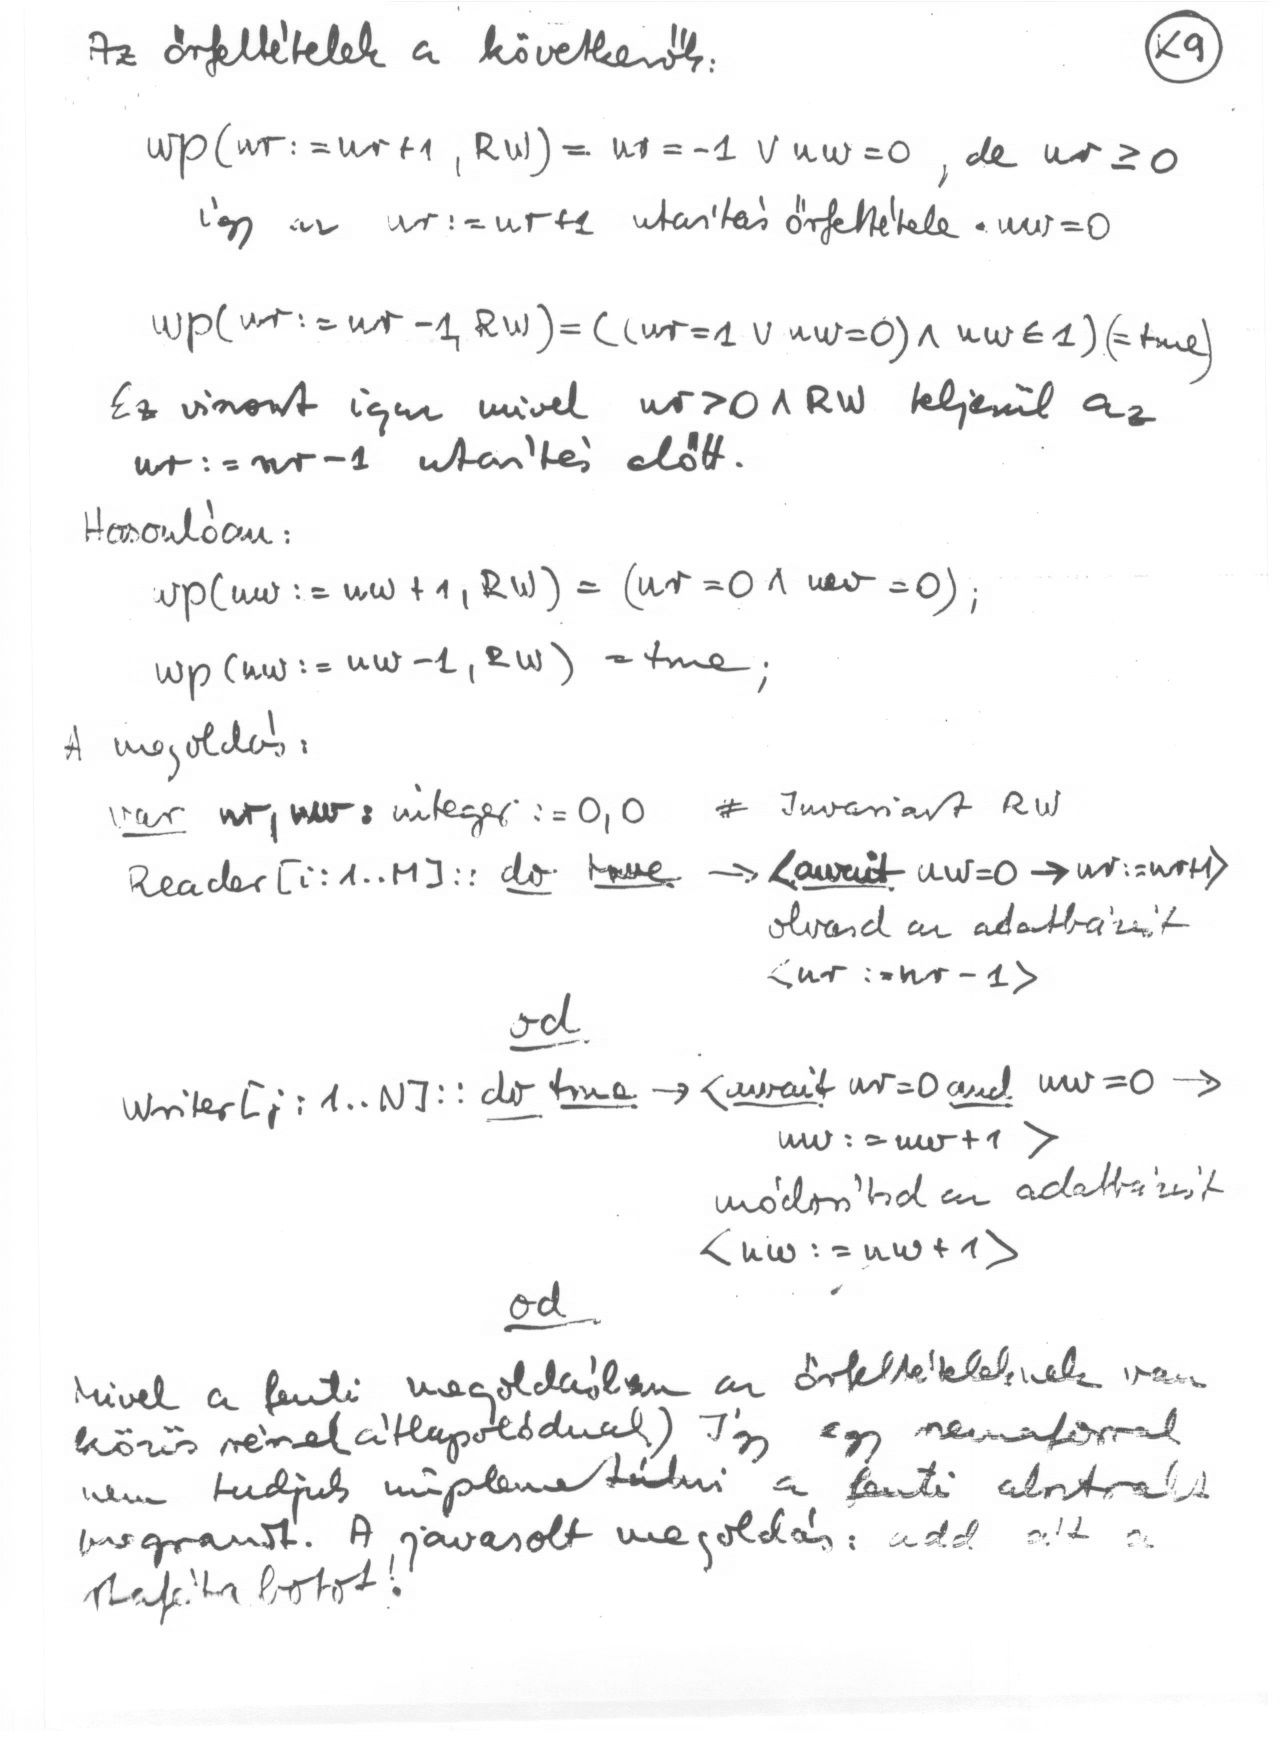 Az őrfeltételek a következők:
K9
wp(nr:=nr+1, RW) = nr=-1 ∨ nw=0, de nr ≥ 0
így az nr:=nr+1 utasítás őrfeltétele . nw=0
wp(nr:=nr-1, RW) = ((nr=1 ∨ nw=0) ∧ nw ≤ 1) (=true)
Ez viszont igaz mivel nr>0 ∧ RW teljesül az
nr:=nr-1 utasítás előtt.
Hasonlóan:
wp(nw:=nw+1, RW) = (nr=0 ∧ nw=0);
wp(nw:=nw-1, RW) = true;
A megoldás:
var nr, nw : integer := 0,0 # Invariant RW
Reader[i:1..M]:: do true → <await nw=0 → nr:=nr+1>
olvasd az adatbázist
<nr:=nr-1>
od
Writer[j:1..N]:: do true → <await nr=0 and nw=0 →
nw:=nw+1>
módosítsd az adatbázist
<nw:=nw+1>
od
Mivel a fenti megoldásban az őrfeltételeknek van
közös része (átlapolódnak) Így egy szemaforral
nem tudjuk implementálni a fenti absztrakt
programot. A javasolt megoldás: add át a
stafétabotot!